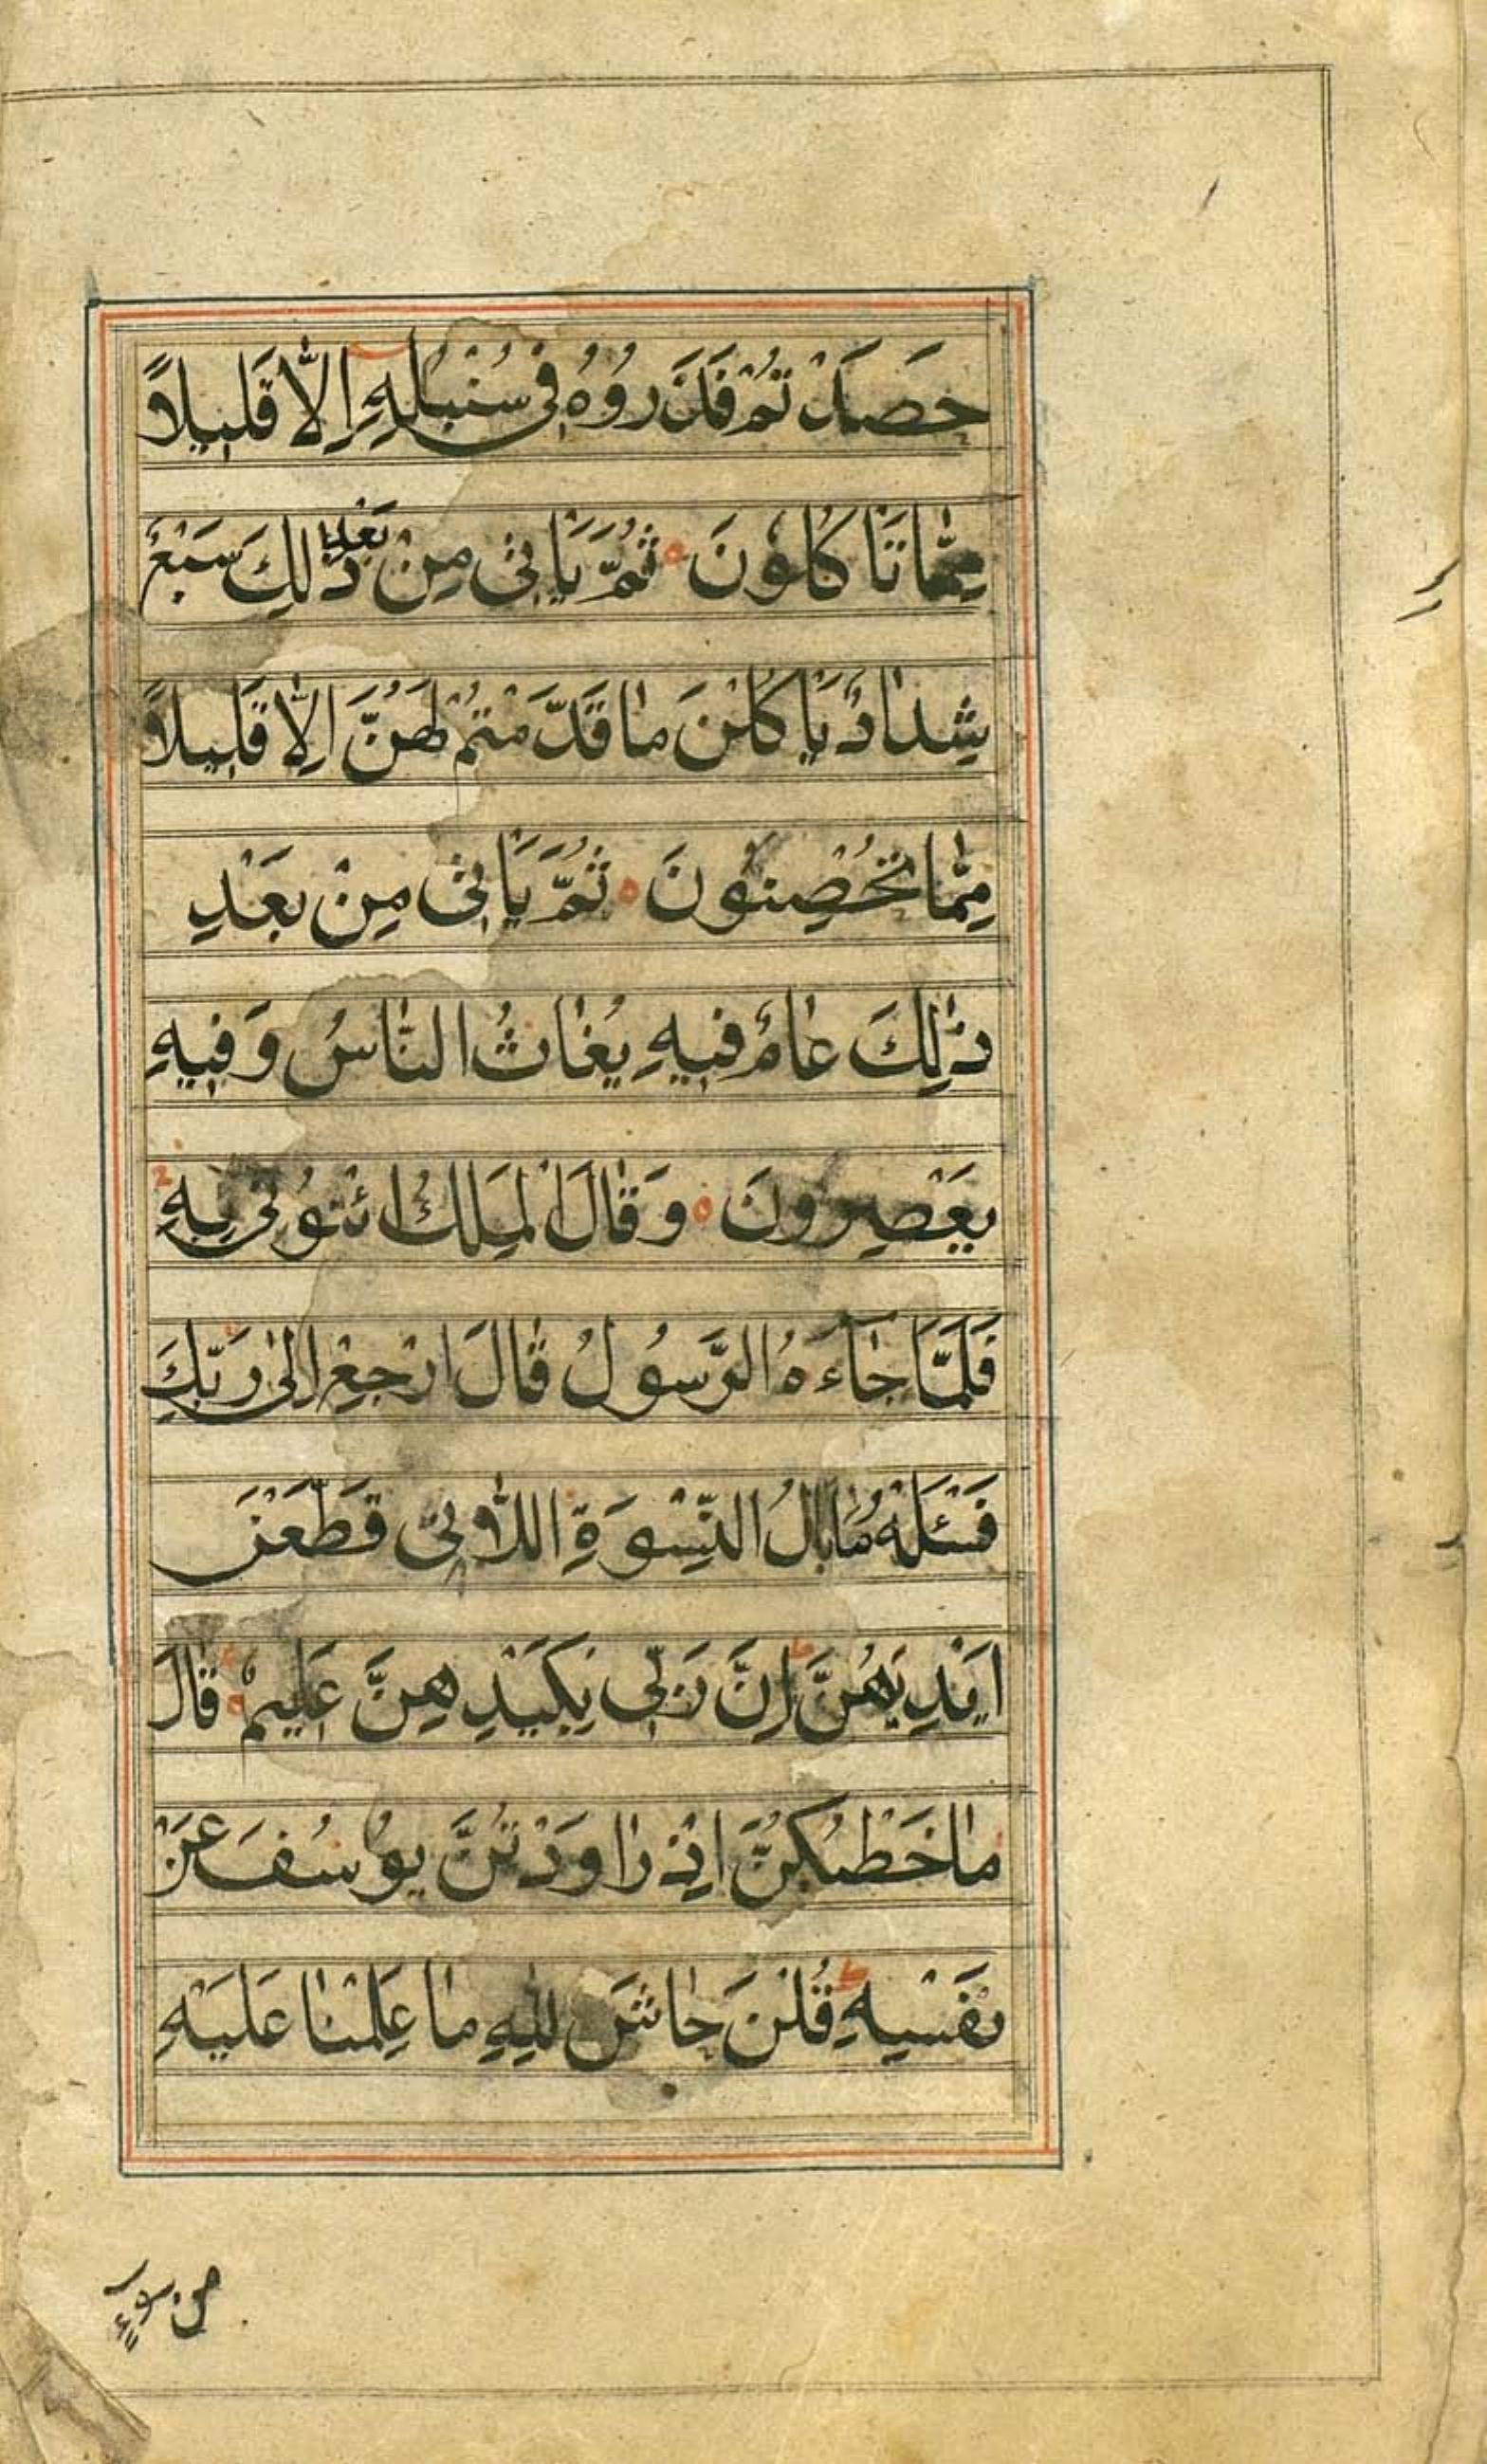 حَصَدْتُمْ فَذَرُوْهُ فِى سُنْبُلِهٖ اِلَّا قَلِيلاً
مِمَّا تَاْكُلُونَ ثُمَّ يَاْتِى مِنْ بَعْدِ ذٰلِكَ سَبْعٌ
شِدٰادٌ يَاْكُلْنَ مٰا قَدَّمْتُمْ لَهُنَّ اِلّٰا قَلِيلاً
مِمّٰا تُحْصِنُونَ ثُمَّ يَاْتِى مِنْ بَعْدِ
ذٰلِكَ عٰامٌ فِيهِ يُغٰاثُ النّٰاسُ وَفِيهِ
يَعْصِرُونَ وَقٰالَ الْمَلِكُ ائْتُونِى بِهٖ
فَلَمَّا جٰاۤءَهُ الرَّسُولُ قٰالَ ارْجِعْ اِلىٰ رَبِّكَ
فَسْئَلْهُ مٰا بٰالُ النِّسْوَةِ اللّٰاتِى قَطَّعْنَ
اَيْدِيَهُنَّ اِنَّ رَبِّى بِكَيْدِهِنَّ عَلِيمٌ قٰالَ
مٰا خَطْبُكُنَّ اِذْ رٰاوَدْتُنَّ يُوسُفَ عَنْ
نَفْسِهٖ قُلْنَ حٰاشَ لِلّٰهِ مٰا عَلِمْنٰا عَلَيْهِ
مِنْ سُوءٍ